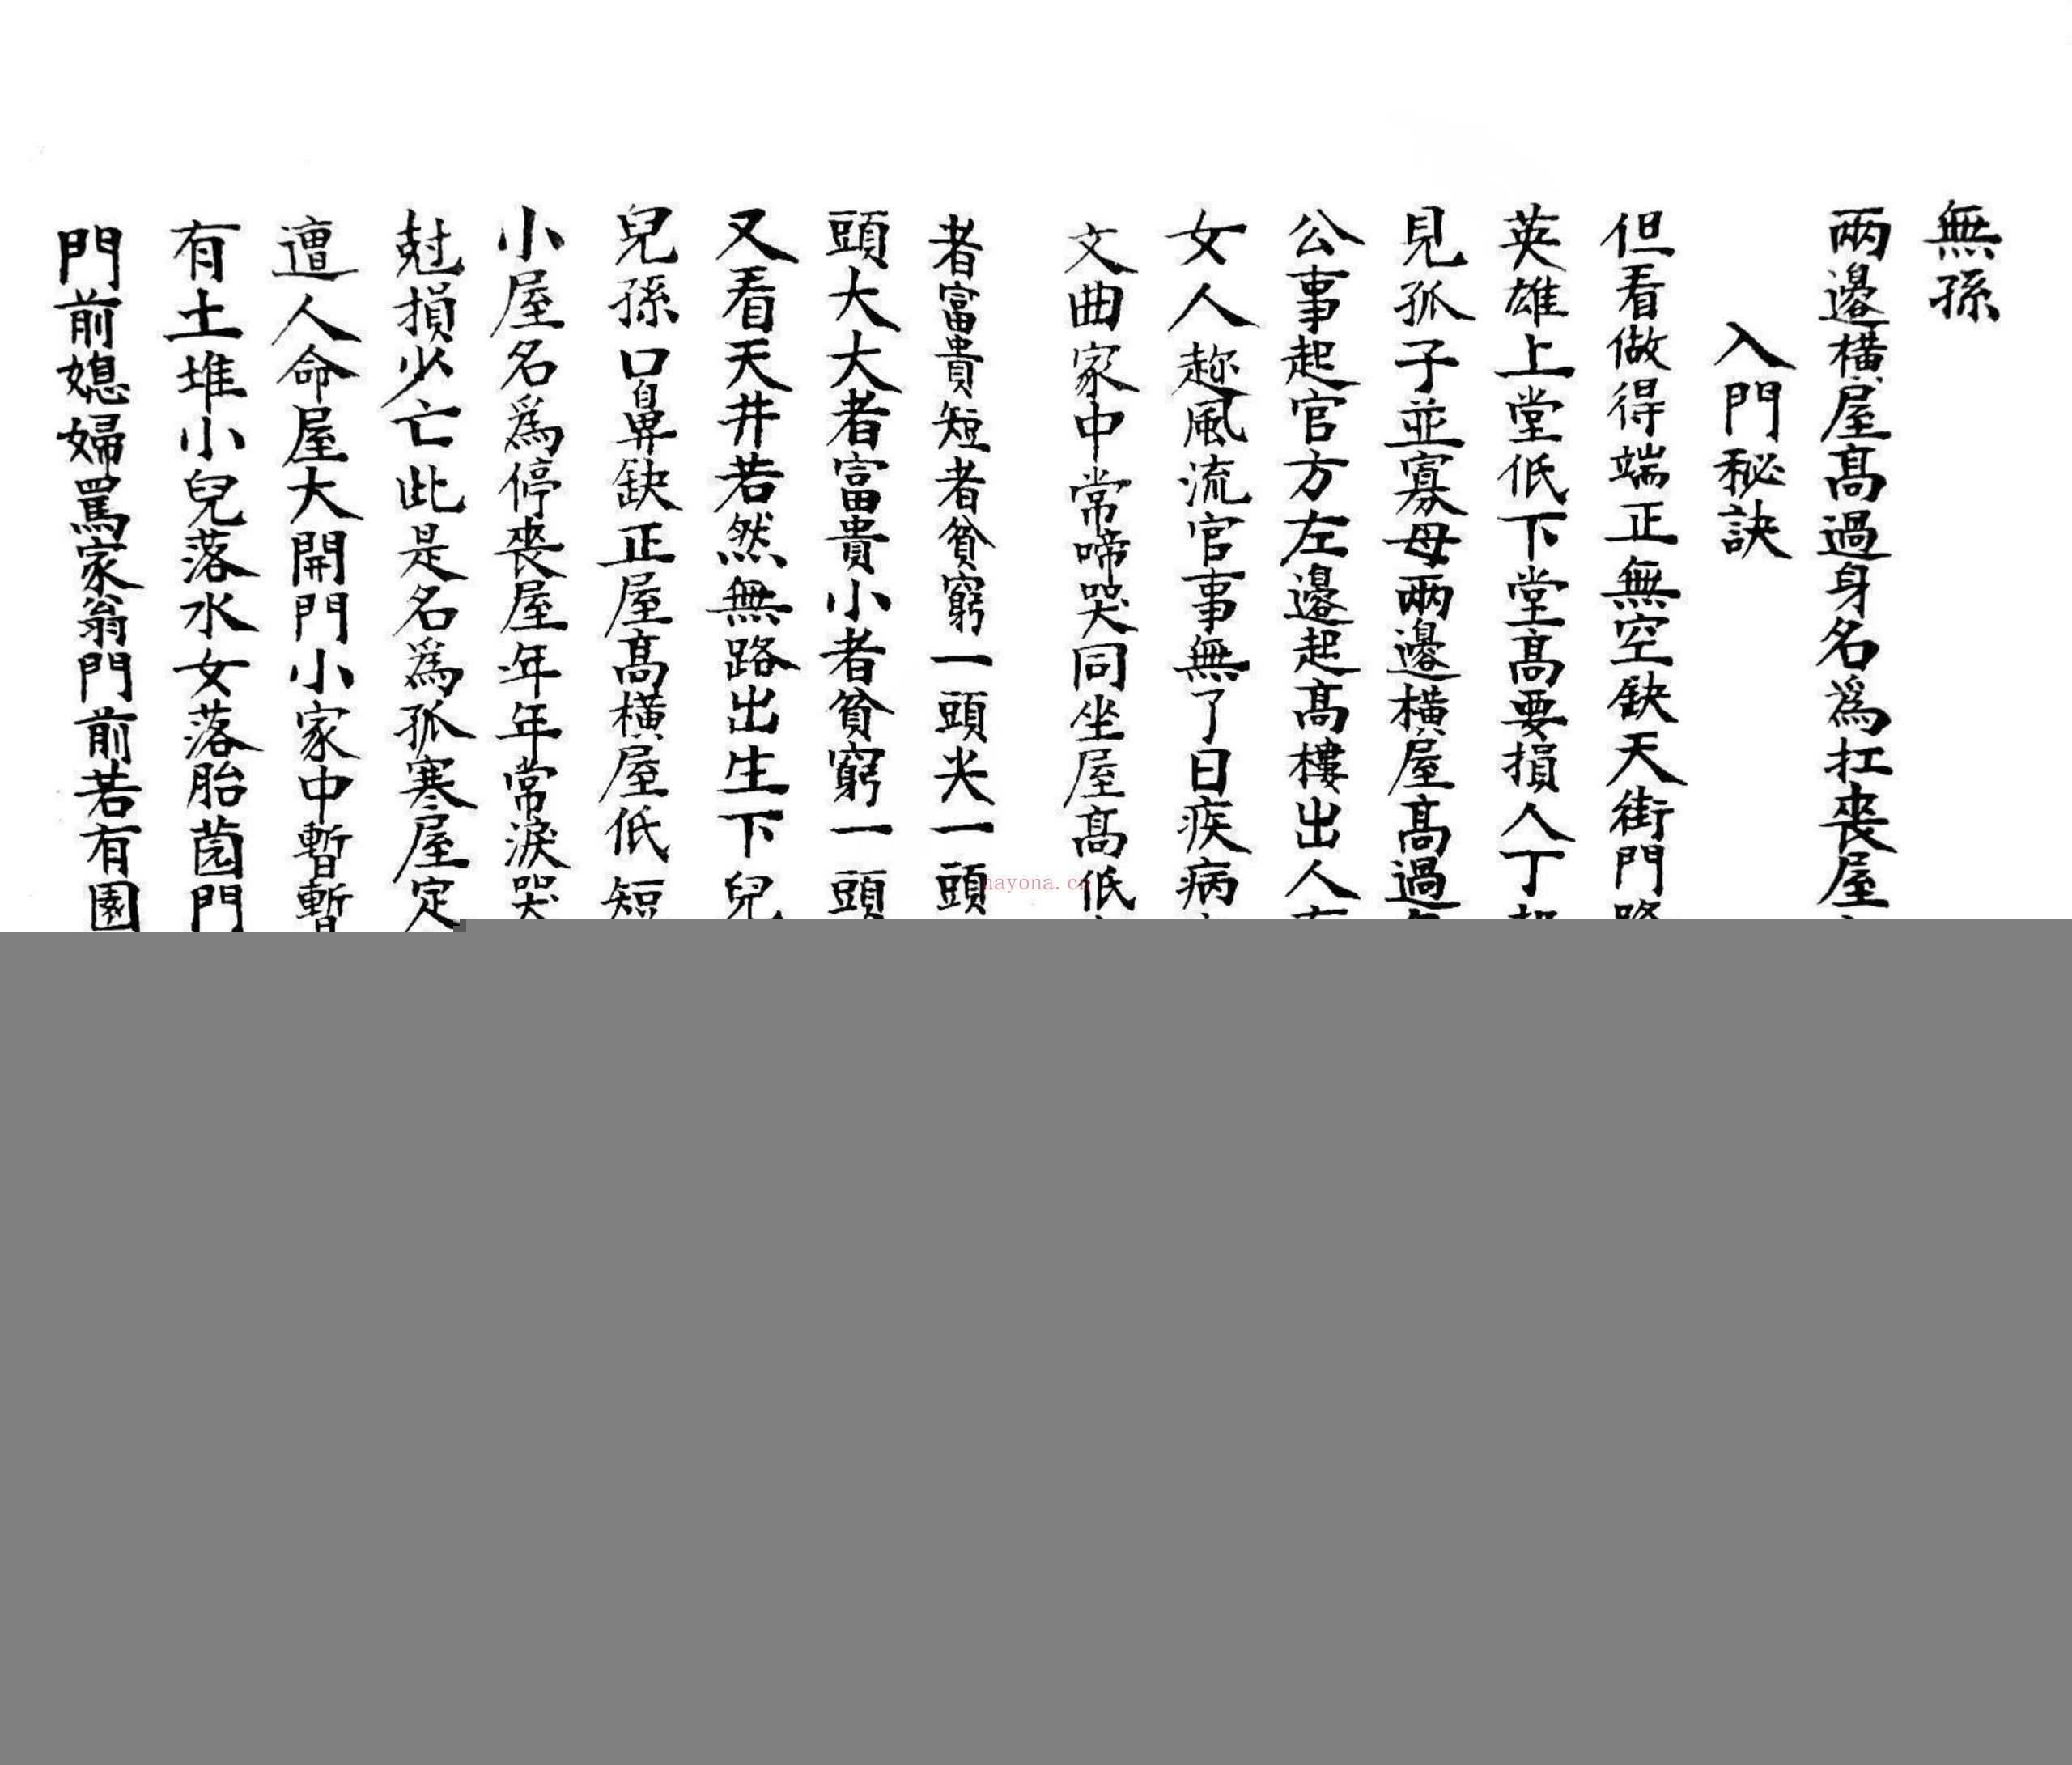 無孫
兩邊橫屋高過身名爲扛喪屋
入門秘訣
但看做得端正無空缺天街門路
英雄上堂低下堂高要損人丁
見孤子並寡母兩邊橫屋高過
公事起官方左邊起高樓出人
女人趂風流官事無了日疾病
文曲家中常啼哭同坐屋高低
者富貴短者貧窮一頭尖一頭
頭大大者富貴小者貧窮一頭
又看天井若然無路出生下兒
兒孫口鼻缺正屋高橫屋低短
小屋名爲停喪屋年年常淚哭
尅損少亡此是名爲孤寒屋定
遭人命屋大開門小家中暫暫
有土堆小兒落水女落胎茵門
門前媳婦罵家翁門前若有園
nayona.c